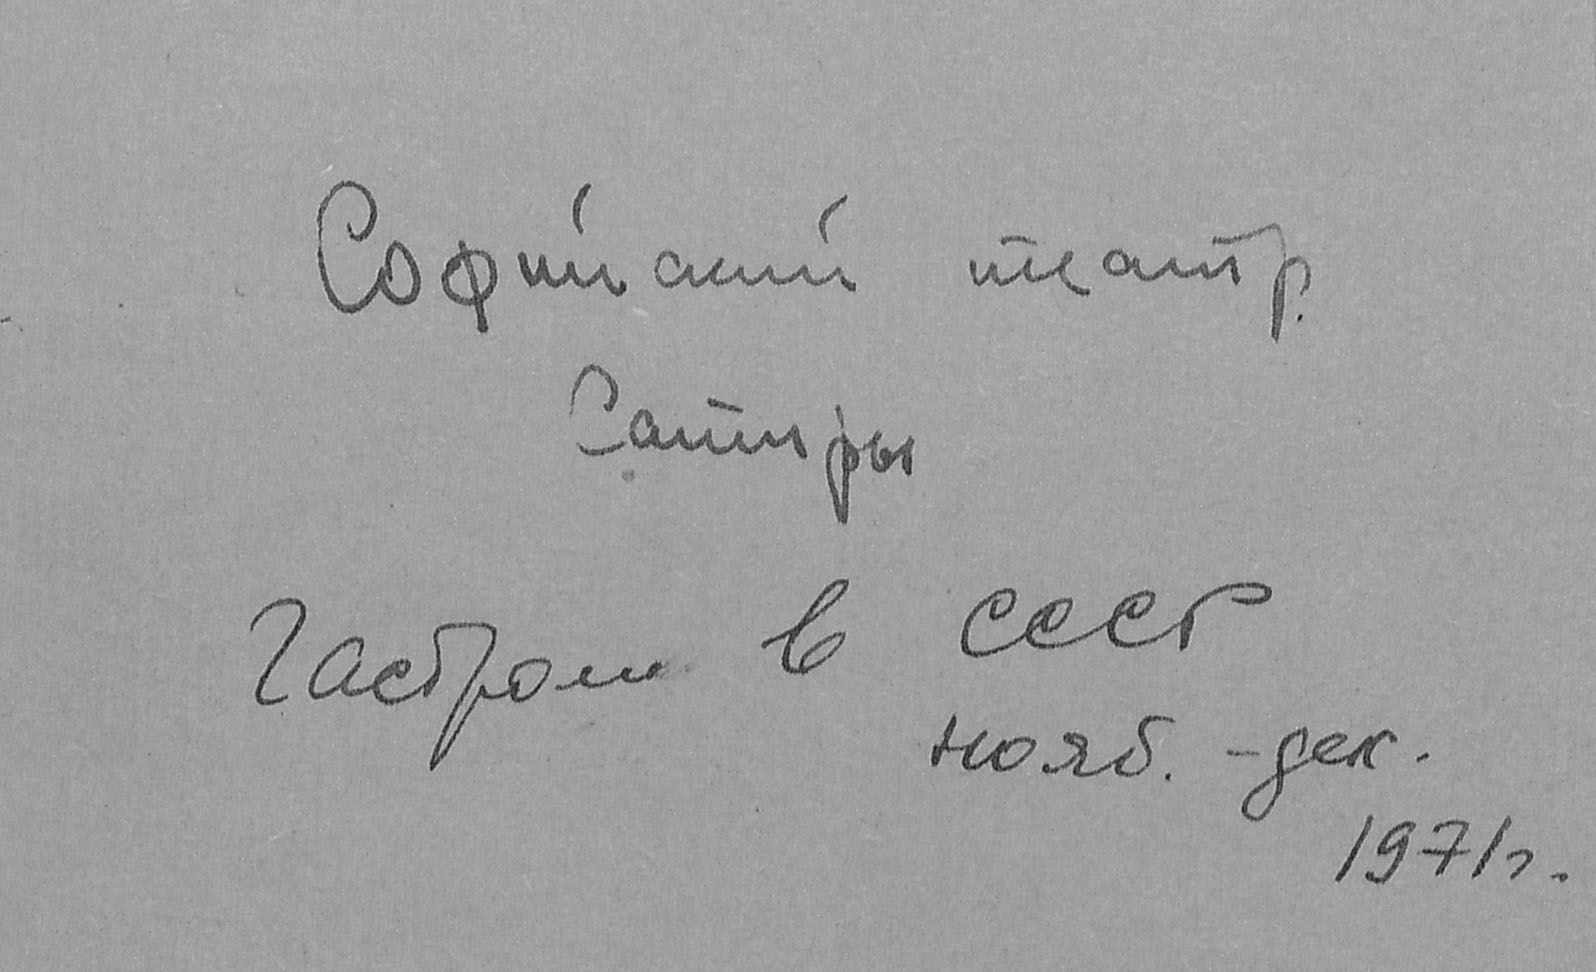 Софийский театр
Сатиры
Гастроли в СССР
нояб. - дек.
1971 г.